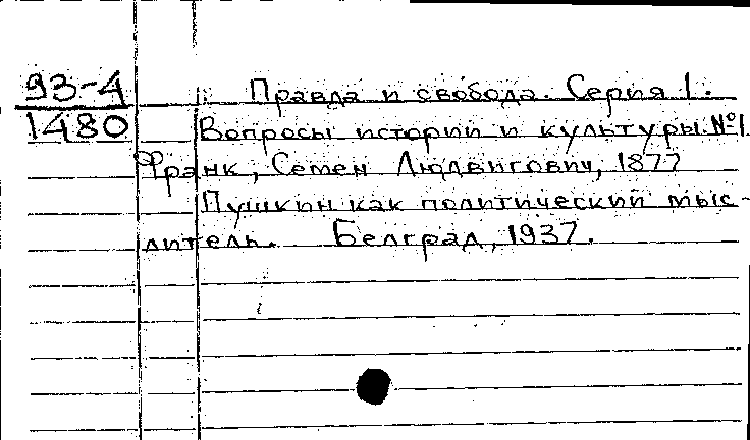 93-4
1480
Правда и свобода. Серия 1.
Вопросы истории и культуры №1.
Франк, Семен Людвигович, 1877
Пушкин как политический мыс-
литель. Белград, 1937.